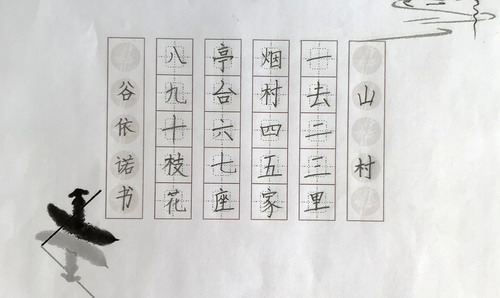 山村
一去二三里
烟村四五家
亭台六七座
八九十枝花
谷依诺书